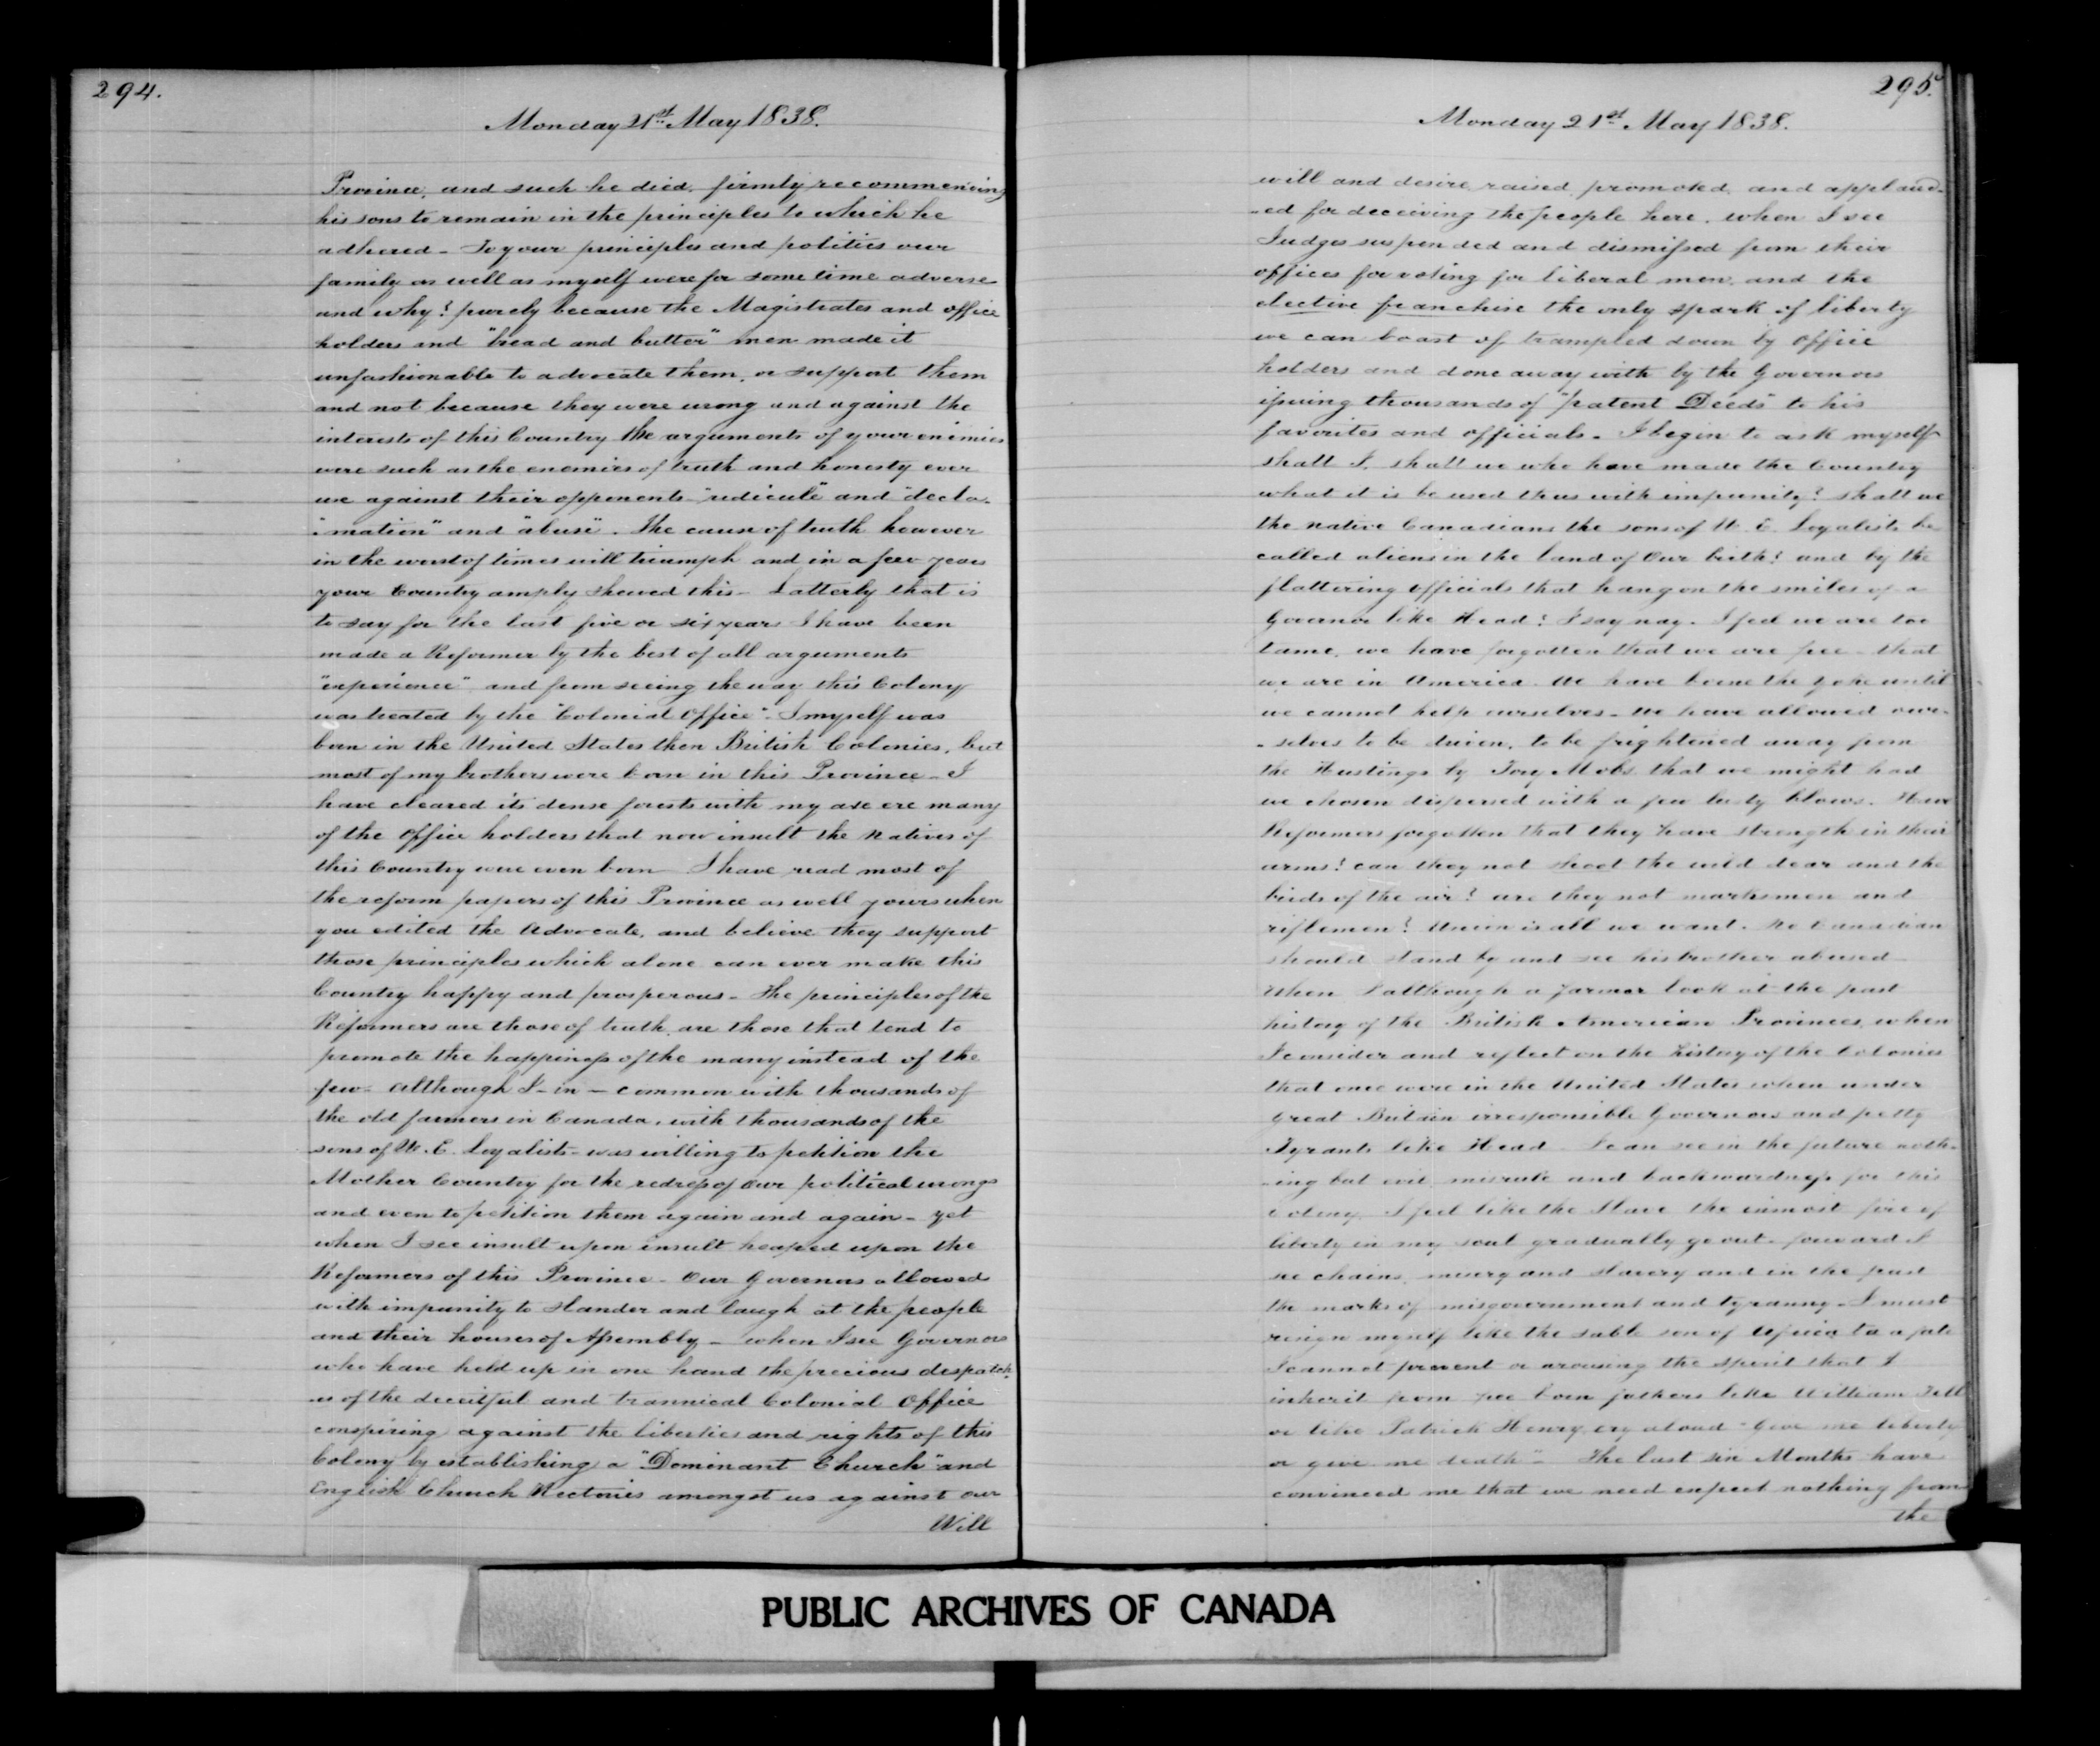 294.
Monday 21st May 1838.
Province, and such he died, firmly recommencing
his sons to remain in the principles to which he
adhered - To your principles and politics our
family as well as myself were for some time adverse
and why? purely because the Magistrates and office
holders and "bread and butter" men made it
unfashionable to advocate them, or support them
and not because they were wrong and against the
interests of this Country the arguments of your enimies
were such as the enemies of truth and honesty ever
use against their opponents "ridicule" and "decla-
"mation" and "abuse". The cause of truth however
in the worst of times will triumph and in a few years
your Country amply shewed this - Latterly that is
to say for the last five or six years I have been
made a Reformer by the best of all arguments
"experience" and from seeing the way this Colony
was treated by the "Colonial Office". I myself was
born in the United States then British Colonies, but
most of my brothers were born in this Province - I
have cleared its dense forests with my axe ere many
of the Office holders that now insult the natives of
this Country were even born I have read most of
the reform papers of this Province as well yours when
you edited the Advocate, and believe they support
those principles which alone can ever make this
Country happy and prosperous - The principles of the
Reformers are those of truth, are those that tend to
promote the happiness of the many instead of the
few - Although I - in - common with thousands of
the old farmers in Canada, with thousands of the
sons of U. E. Loyalists - was willing to petition the
Mother Country for the redress of our political wrongs
and even to petition them again and again - yet
when I see insult upon insult heaped upon the
Reformers of this Province - Our Governors allowed
with impunity to slander and laugh at the people
and their houses of Assembly - when I see Governors
who have held up in one hand the precious despatch-
-es of the deceitful and trannical Colonial Office
conspiring against the liberties and rights of this
Colony by establishing a "Dominant Church" and
English Church Rectories amongst us against our
Will
295.
Monday 21st May 1838.
will and desire, raised, promoted, and applaud-
-ed for deceiving the people here. when I see
Judges suspended and dismissed from their
offices for voting for liberal men, and the
elective franchise the only spark of liberty
we can boast of trampled down by Office
holders and done away with by the Governors
issuing thousands of "patent Deeds" to his
favorites and officials. I begin to ask myself
shall I, shall we who have made the Country
what it is be used thus with impunity? shall we
the native Canadians the sons of U. E. Loyalists be
called aliens in the land of Our birth? and by the
flattering Officials that hang on the smiles of a
Governor like Head? I say nay. I feel we are too
tame, we have forgotten that we are free - that
we are in America. We have borne the yoke until
we cannot help ourselves - We have allowed our-
-selves to be driven, to be frightened away from
the Hustings by Tory Mobs that we might had
we chosen dispersed with a few lusty blows. Have
Reformers forgotten that they have strength in their
arms? can they not shoot the wild dear and the
birds of the air? are they not marksmen and
riflemen? Union is all we want. No Canadian
should stand by and see his brother abused -
When I although a farmer look at the past
history of the British American Provinces, when
I consider and reflect on the history of the Colonies
that once were in the United States when under
Great Britain irresponsible Governors and petty
Tyrants like Head - I can see in the future noth-
-ing but evil, misrule and backwardness for this
Colony. I feel like the Slave the inmost fire of
liberty in my soul gradually go out - forward I
see chains, misery and slavery and in the past
the marks of misgovernment and tyranny - I must
resign myself like the sable son of Africa to a fate
I cannot prevent or arousing the spirit that I
inherit from free born fathers like William Tell
or like Patrick Henry cry aloud "Give me liberty
or give me death" - The last six Months have
convinced me that we need expect nothing from
the
PUBLIC ARCHIVES OF CANADA